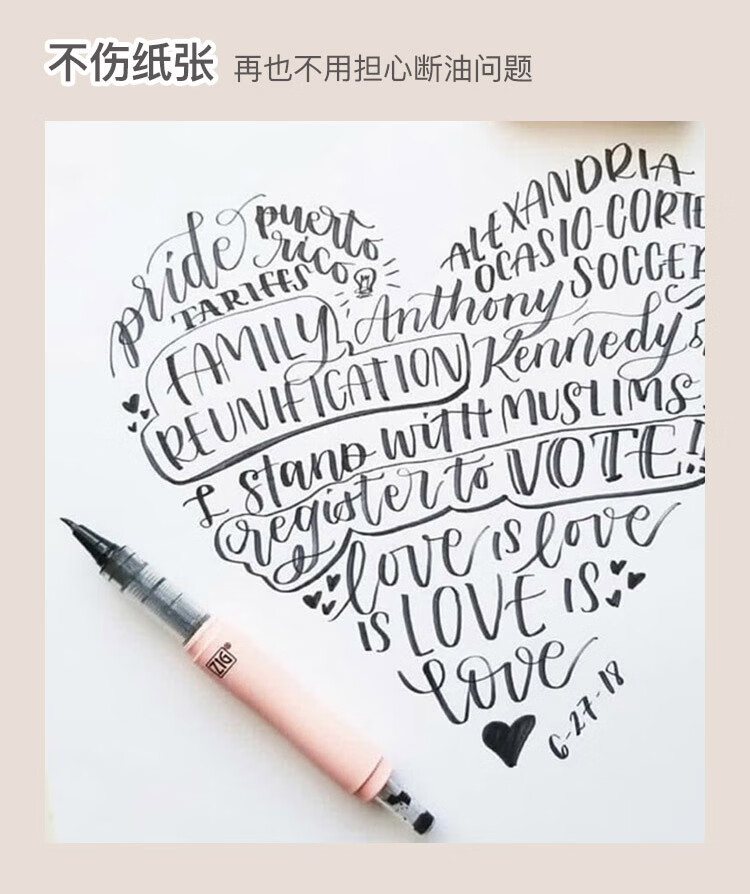 不伤纸张 再也不用担心断油问题
pride puerto rico
TARIFFS
ALEXANDRIA
OCASIO-CORTE
FAMILY Anthony SOCCER
REUNIFICATION Kennedy
I stand with MUSLIMS
register to VOTE!!
love is love
IS LOVE IS
love
6-27-18
ZIG®